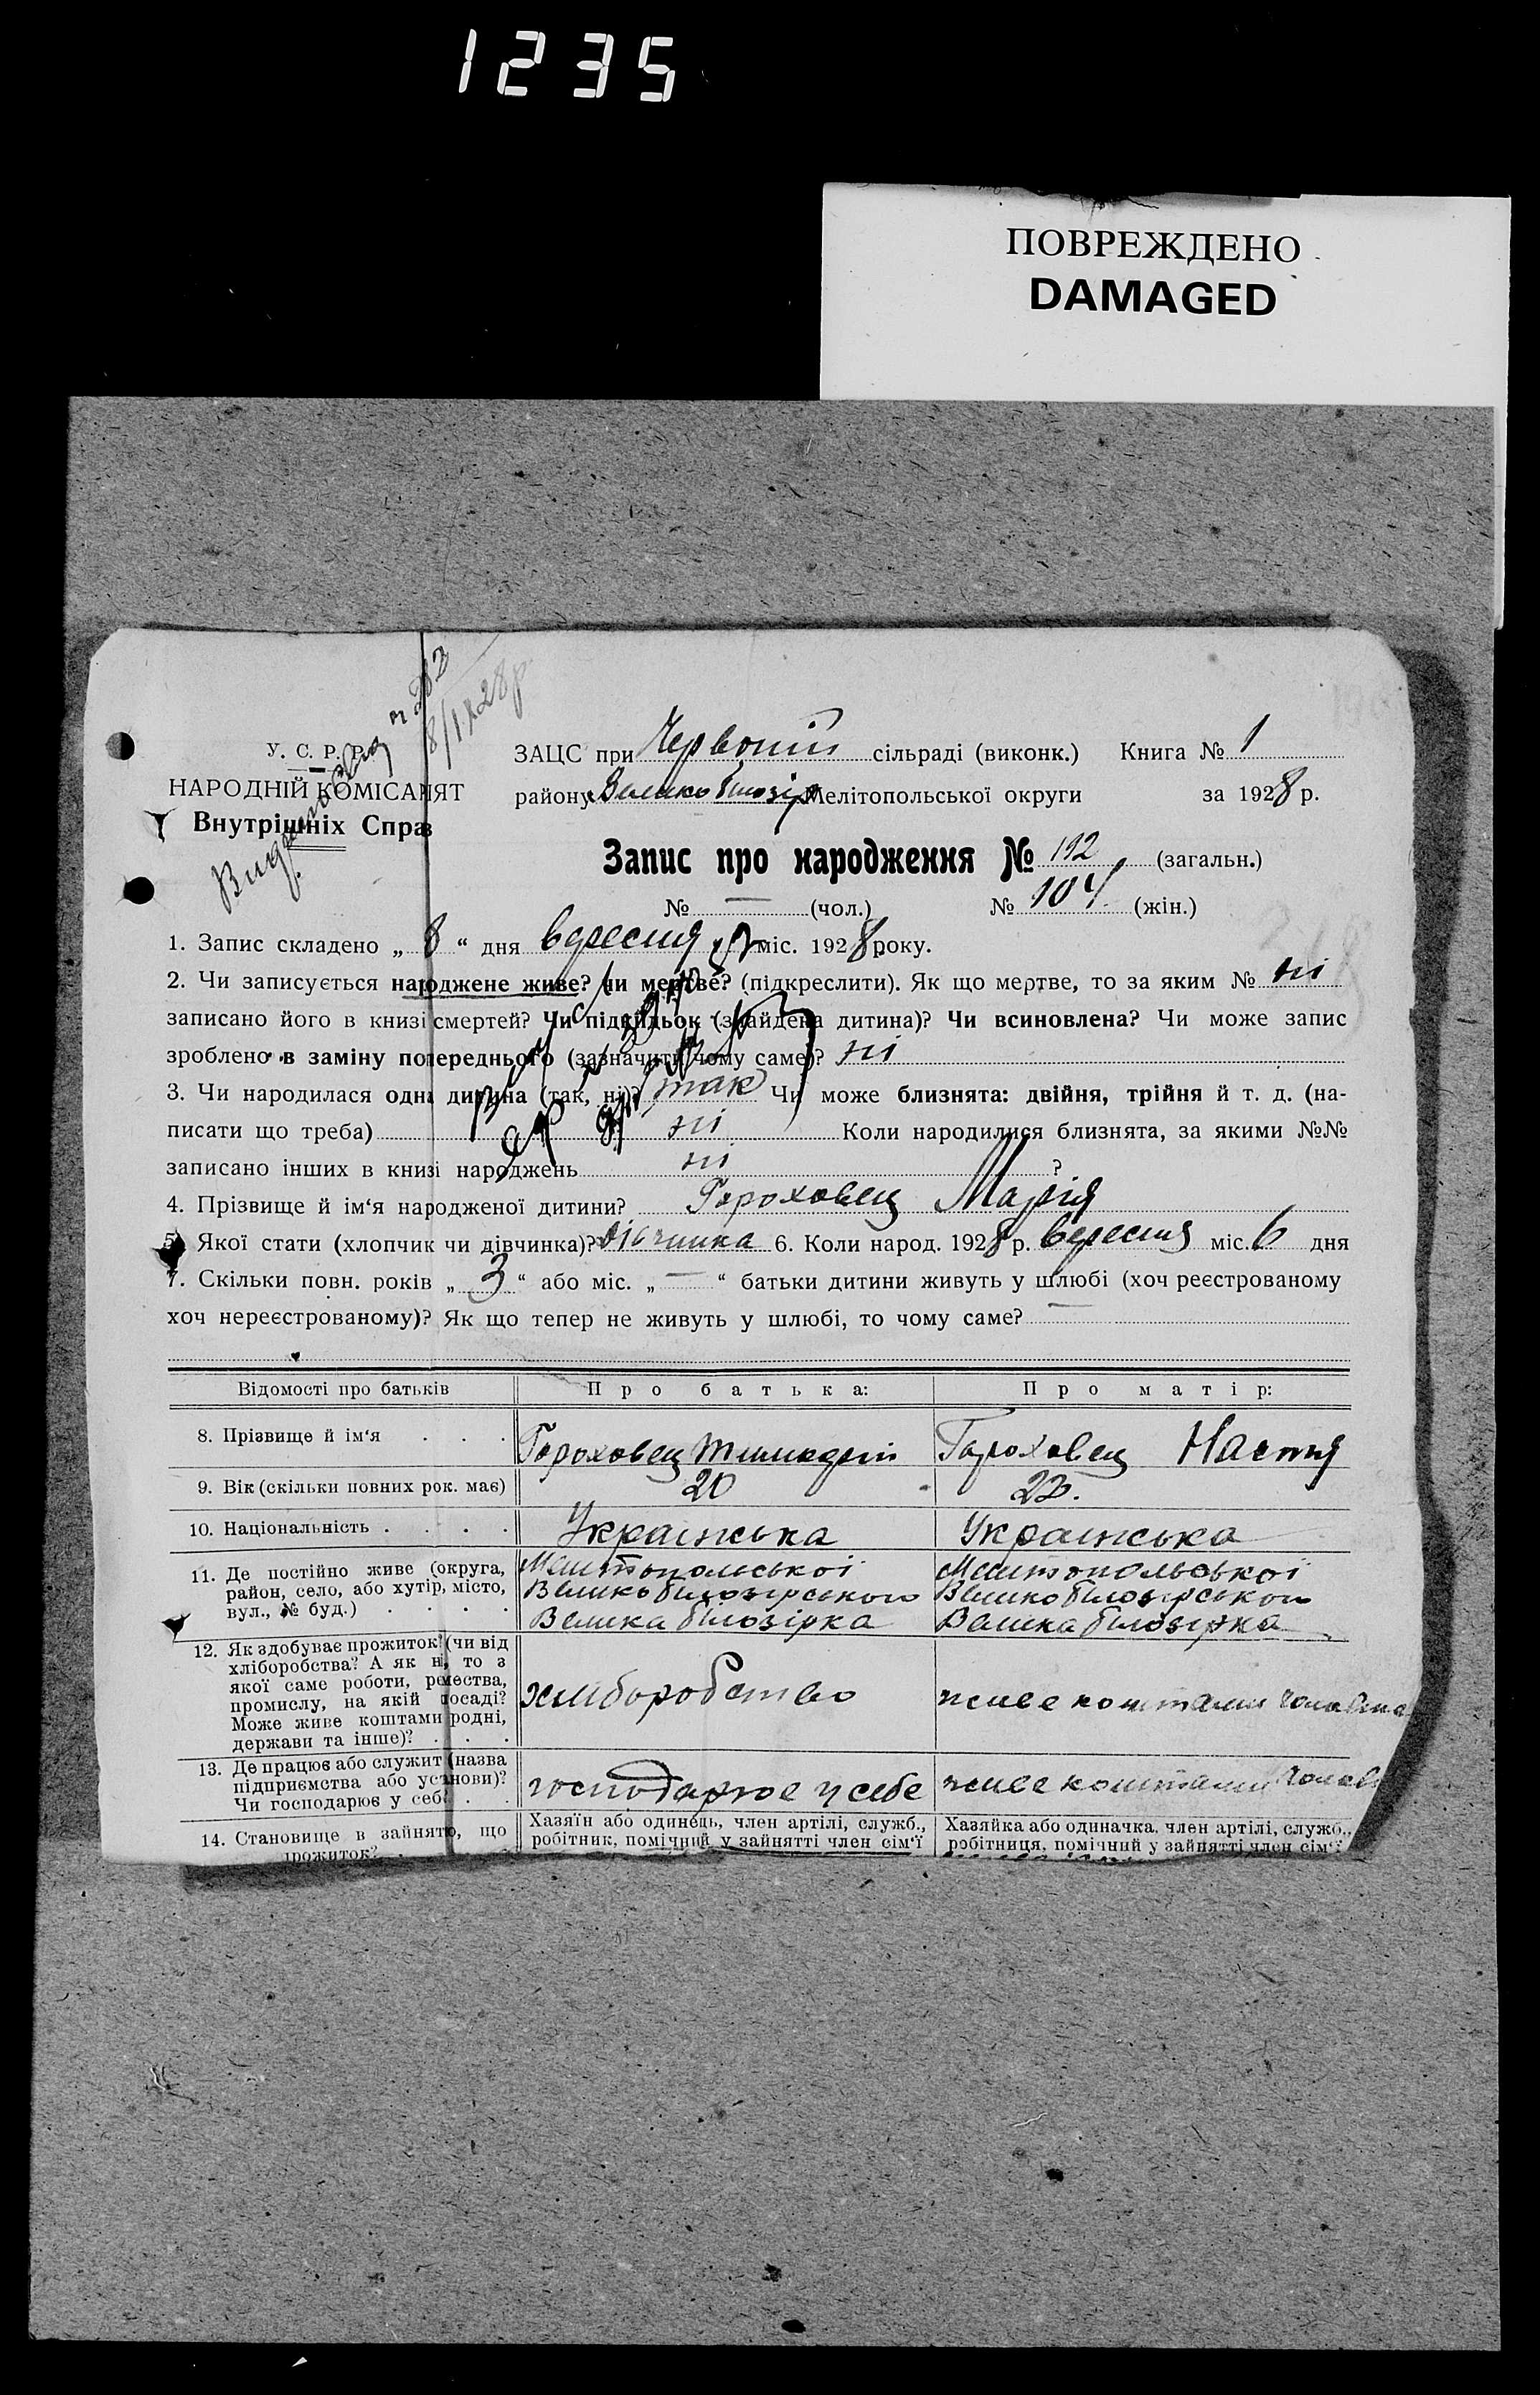 1235
ПОВРЕЖДЕНО
DAMAGED
У. С. Р. Р.
НАРОДНІЙ КОМІСАРІЯТ
Внутрішніх Справ
8/IX 28 р.
ЗАЦС при Червоній сільраді (виконк.) Книга № 1
району Велико Білозір Мелітопольської округи за 1928 р.
Запис про народження № 192 (загальн.)
№ — (чол.) № 104 (жін.)
1. Запис складено „ 8 “ дня вересня міс. 1928 року.
2. Чи записується народжене живе? чи мертве? (підкреслити). Як що мертве, то за яким № ні
записано його в книзі смертей? Чи підкидьок (знайдена дитина)? Чи всиновлена? Чи може запис
зроблено в заміну попереднього (зазначити чому саме)? ні
3. Чи народилася одна дитина (так, ні)? так Чи може близнята: двійня, трійня й т. д. (на-
писати що треба) ні Коли народилися близнята, за якими №№
записано інших в книзі народжень ні ?
4. Прізвище й ім‘я народженої дитини? Гороховец Марія
5. Якої стати (хлопчик чи дівчинка)? дівчинка 6. Коли народ. 1928 р. вересня міс. 6 дня
7. Скільки повн. років „ 3 “ або міс. „ — “ батьки дитини живуть у шлюбі (хоч реєстрованому
хоч нереєстрованому)? Як що тепер не живуть у шлюбі, то чому саме? —
Відомості про батьків Про батька: Про матір:
8. Прізвище й ім‘я . . . Гороховец Тимофій Гороховец Настя
9. Вік (скільки повних рок. має) 20 22.
10. Національність . . . . Українська Українська
11. Де постійно живе (округа, Мелітопольської Мелітопольської
район, село, або хутір, місто, Великобілозірського Великобілозірського
вул., № буд.) . . . . Велика білозірка Велика білозірка
12. Як здобуває прожиток? (чи від
хліборобства? А як ні, то з
якої саме роботи, ремества,
промислу, на якій посаді? хліборобство живе коштами чоловіка
Може живе коштами родні,
держави та інше)? . . .
13. Де працює або служит (назва
підприємства або установи)? господарює у себе живе коштами
Чи господарює у себе? . .
14. Становище в зайнятю, що Хазяїн або одинець, член артілі, служб., Хазяйка або одиначка, член артілі, служб.,
прожиток? . робітник, помічний у зайнятті член сім‘ї робітниця, помічний у зайнятті член сім‘ї